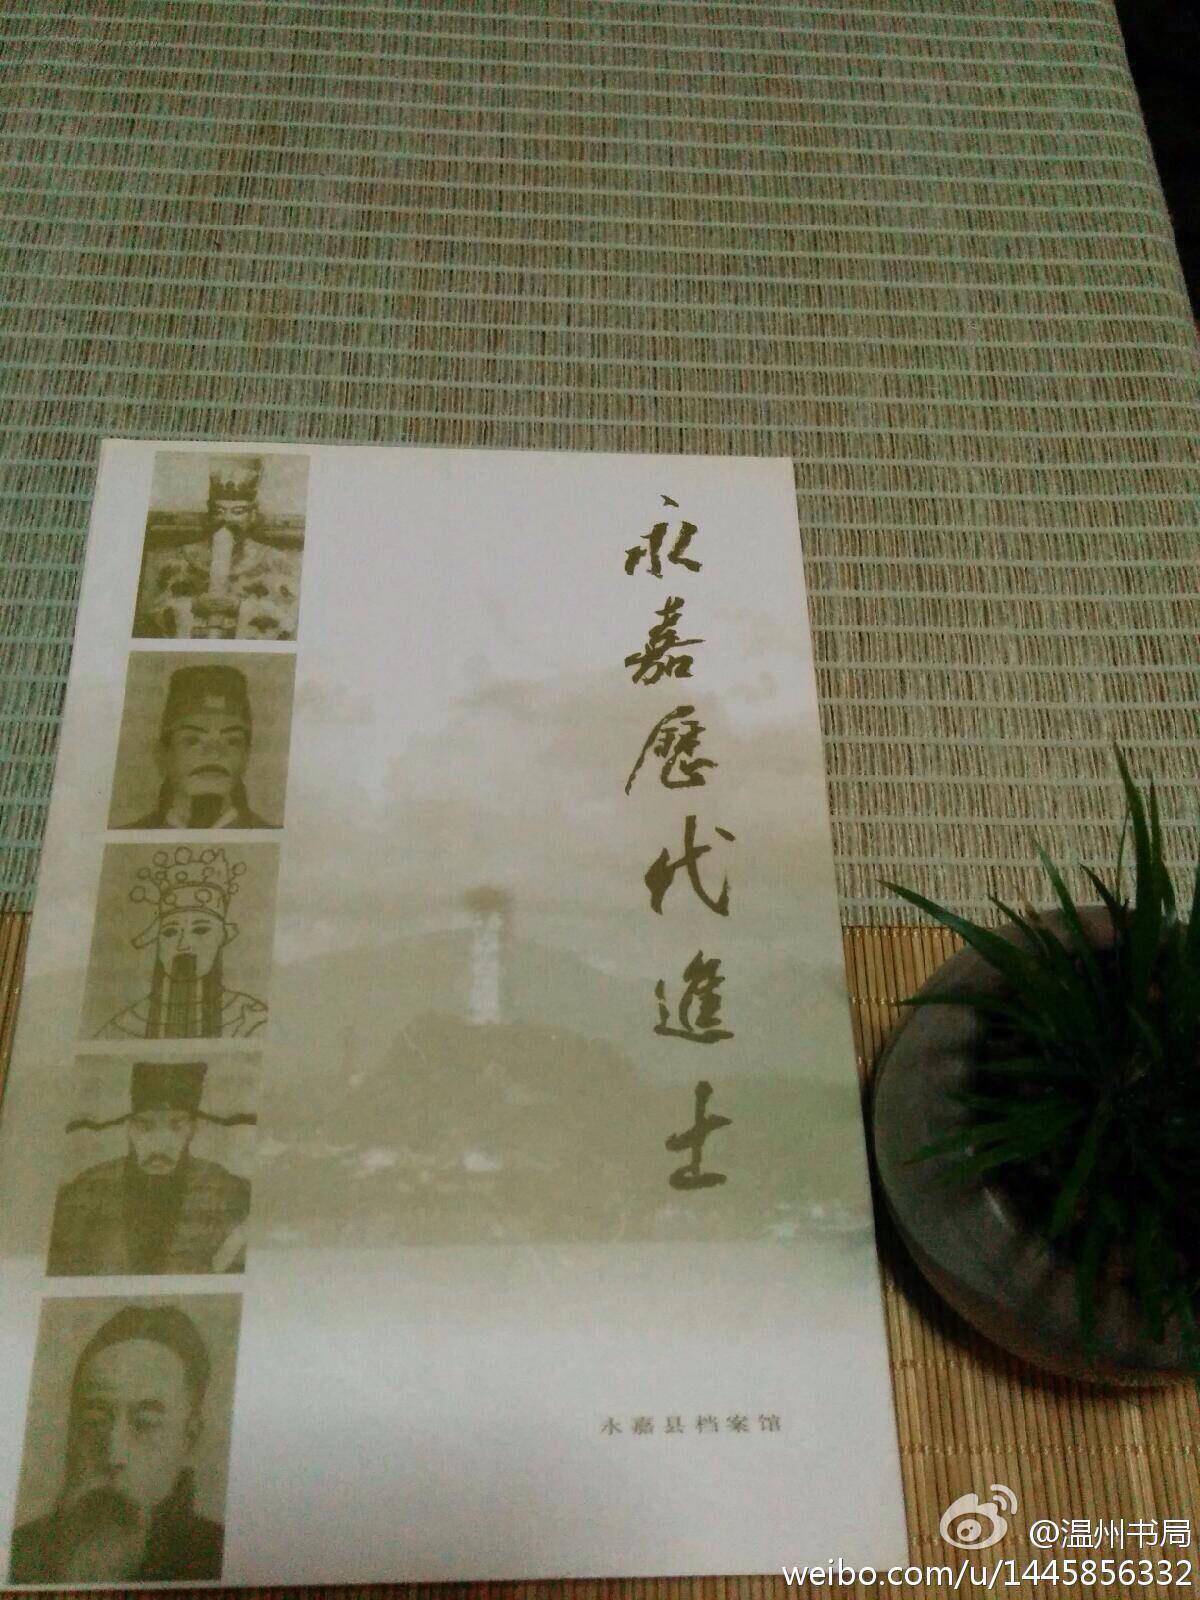 永嘉歷代進士
永嘉县档案馆
@温州书局
weibo.com/u/1445856332